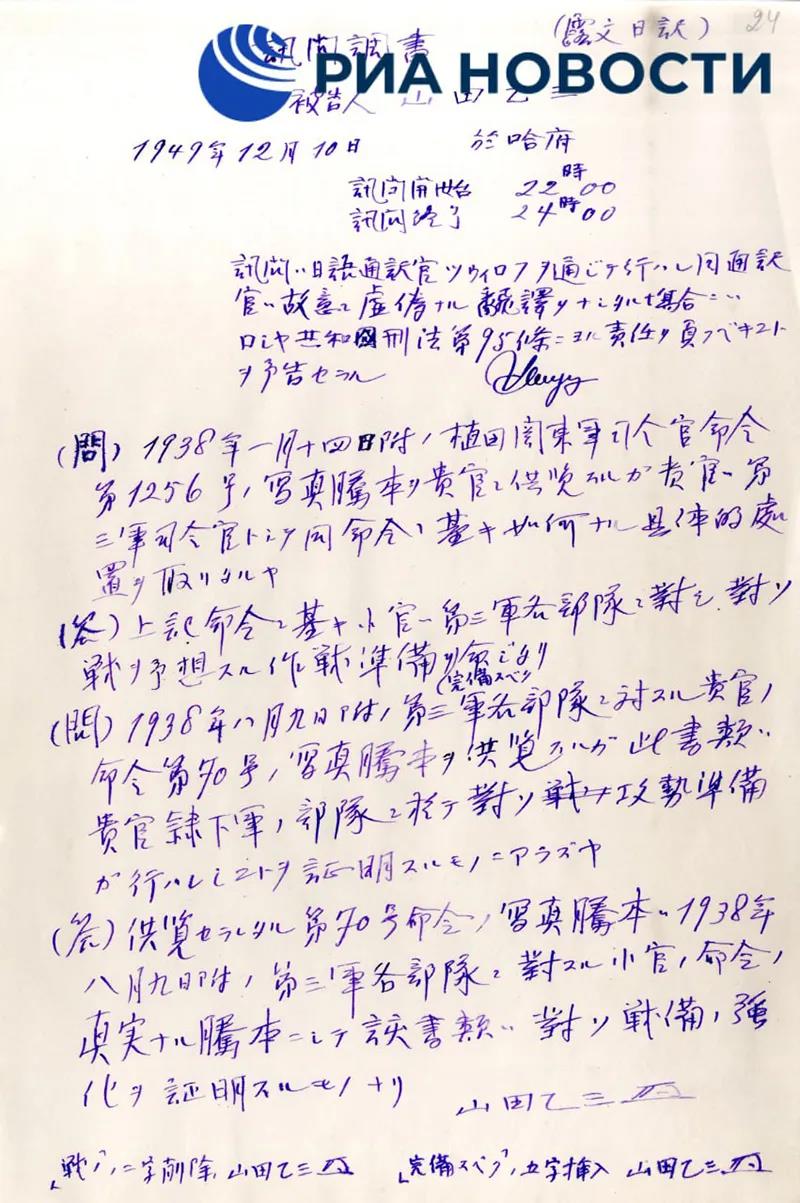 24
(露文日訳)
訊問調書
РИА НОВОСТИ
被告人 山田乙三
1949年12月10日 於哈府
訊問開始 22時00
訊問終了 24時00
訊問ハ日語通訳官ツウィロフヲ通ジテ行ハレ同通訳
官ハ故意ニ虚偽ナル飜譯ヲナシタル場合ニハ
ロシヤ共和国刑法第95條ニヨル責任ヲ負フベキコト
ヲ予告セラル
(問) 1938年一月十四日附ノ植田関東軍司令官命令
第1256号ノ写真騰本ヲ貴官ニ供覧スルガ貴官ハ第
三軍司令官トシテ同命令ニ基キ如何ナル具体的處
置ヲ取リタルヤ
(答) 上記命令ニ基キ小官ハ第三軍各部隊ニ對シ對ソ
戦ヲ予想スル作戦準備ヲ命ジタリ
(完備スベク)
(問) 1938年八月九日附ノ第三軍各部隊ニ対スル貴官ノ
命令第90号ノ写真騰本ヲ供覧スルガ此書類ハ
貴官隷下軍ノ部隊ニ於テ對ソ戦ノ攻勢準備
ガ行ハレシコトヲ証明スルモノニアラズヤ
(答) 供覧セラレタル第90号命令ノ写真騰本ハ1938年
八月九日附ノ第三軍各部隊ニ對スル小官ノ命令ノ
真実ナル騰本ニシテ該書類ハ對ソ戦備ノ強
化ヲ証明スルモノナリ
山田乙三
「戦ノ」ノ二字削除 山田乙三 「完備スベク」ノ五字挿入 山田乙三